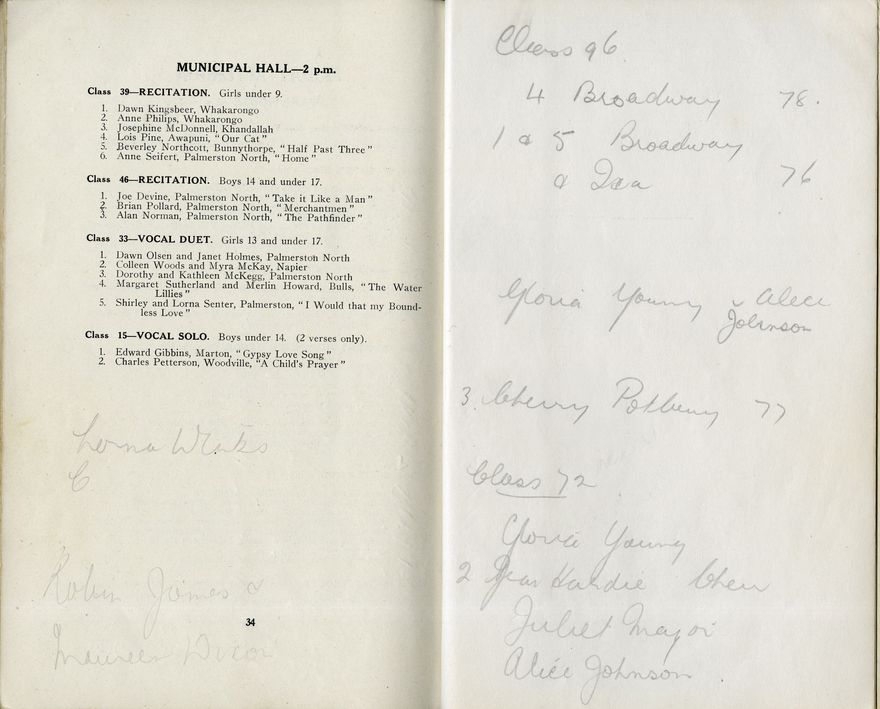 MUNICIPAL HALL—2 p.m.
Class 39—RECITATION. Girls under 9.
1. Dawn Kingsbeer, Whakarongo
2. Anne Philips, Whakarongo
3. Josephine McDonnell, Khandallah
4. Lois Pine, Awapuni, "Our Cat"
5. Beverley Northcott, Bunnythorpe, "Half Past Three"
6. Anne Seifert, Palmerston North, "Home"
Class 46—RECITATION. Boys 14 and under 17.
1. Joe Devine, Palmerston North, "Take it Like a Man"
2. Brian Pollard, Palmerston North, "Merchantmen"
3. Alan Norman, Palmerston North, "The Pathfinder"
Class 33—VOCAL DUET. Girls 13 and under 17.
1. Dawn Olsen and Janet Holmes, Palmerston North
2. Colleen Woods and Myra McKay, Napier
3. Dorothy and Kathleen McKegg, Palmerston North
4. Margaret Sutherland and Merlin Howard, Bulls, "The Water
Lillies"
5. Shirley and Lorna Senter, Palmerston, "I Would that my Bound-
less Love"
Class 15—VOCAL SOLO. Boys under 14. (2 verses only).
1. Edward Gibbins, Marton, "Gypsy Love Song"
2. Charles Petterson, Woodville, "A Child's Prayer"
Lorna
C
Robin James &
34
Maureen Dixon
Class 96
4 Broadway 78.
1 & 5 Broadway
& 76
Gloria Young & Alice
Johnson
3. Cherry 77
Class 72
Gloria Young
2 Jean Hardie
Juliet Major
Alice Johnson